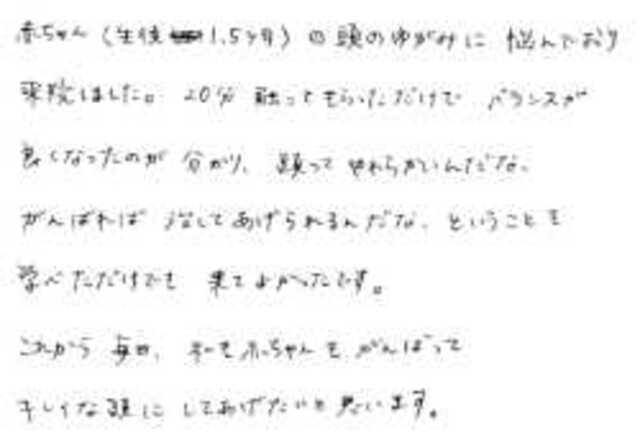 赤ちゃん(生後1.5ヶ月)の頭のゆがみに 悩んでおり
来院しました。20分 触ってもらっただけで バランスが
良くなったのが 分かり、頭って やわらかいんだな、
がんばれば 治してあげられるんだな、ということを
学べただけでも 来てよかったです。
これから 毎日、私も赤ちゃんも がんばって
キレイな頭に してあげたいと思います。